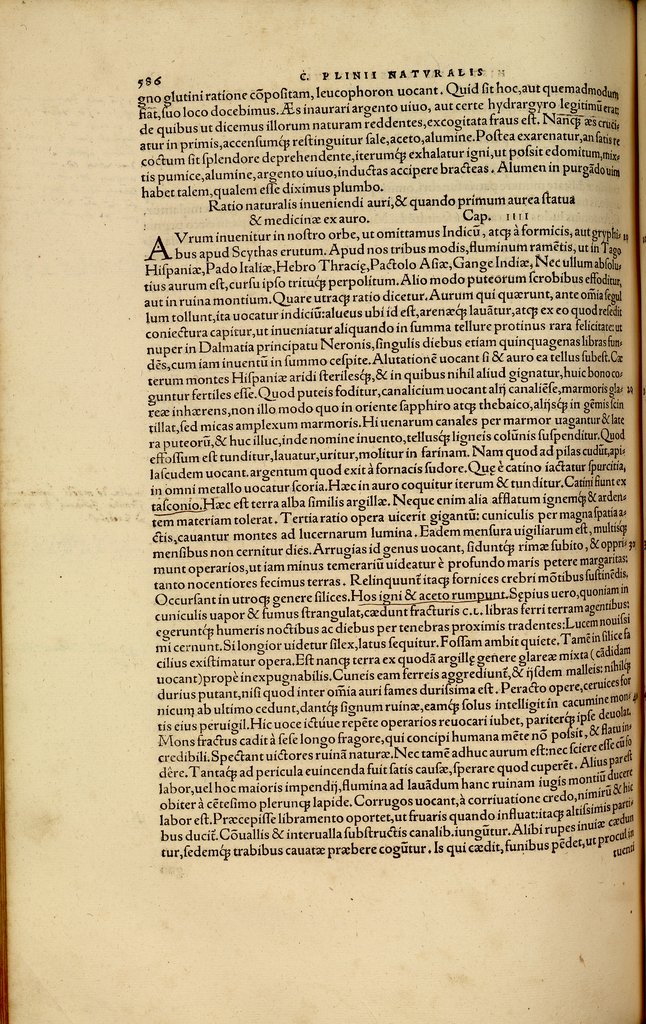 586
C. PLINII NATVRALIS
gno glutini ratione cōpositam, leucophoron uocant. Quid sit hoc, aut quemadmodum
fiat, suo loco docebimus. Æs inaurari argento uiuo, aut certe hydrargyro legitimū erat:
de quibus ut dicemus illorum naturam reddentes, excogitata fraus est. Nanqꝫ æs cruci
atur in primis, accensumqꝫ restinguitur sale, aceto, alumine. Postea exarenatur, an satis re
coctum sit splendore deprehendente, iterumqꝫ exhalatur igni, ut possit edomitum, mix
tis pumice, alumine, argento uiuo, inductas accipere bracteas. Alumen in purgādo uim
habet talem, qualem esse diximus plumbo.
Ratio naturalis inueniendi auri, & quando primum aurea statua
& medicinæ ex auro. Cap. IIII
AVrum inuenitur in nostro orbe, ut omittamus Indicū, atqꝫ à formicis, aut gryphi
bus apud Scythas erutum. Apud nos tribus modis, fluminum ramētis, ut in Tago
Hispaniæ, Pado Italiæ, Hebro Thracię, Pactolo Asiæ, Gange Indiæ, Nec ullum absolu
tius aurum est, cursu ipso trituqꝫ perpolitum. Alio modo puteorum scrobibus effoditur,
aut in ruina montium. Quare utraqꝫ ratio dicetur. Aurum qui quærunt, ante oīa segul
lum tollunt, ita uocatur indiciū: alueus ubi id est, arenæqꝫ lauātur, atqꝫ ex eo quod resedit
coniectura capitur, ut inueniatur aliquando in summa tellure protinus rara felicitate: ut
nuper in Dalmatia principatu Neronis, singulis diebus etiam quinquagenas libras fun
dēs, cum iam inuentū in summo cespite. Alutationē uocant si & auro ea tellus subest. Cæ
terum montes Hispaniæ aridi sterilesqꝫ, & in quibus nihil aliud gignatur, huic bono co
guntur fertiles esse. Quod puteis foditur, canalicium uocant alij canaliēse, marmoris gla
reæ inhærens, non illo modo quo in oriente sapphiro atqꝫ thebaico, alijsqꝫ in gēmis scin
tillat, sed micas amplexum marmoris. Hi uenarum canales per marmor uagantur & late
ra puteorū, & huc illuc, inde nomine inuento, tellusqꝫ ligneis colūnis suspenditur. Quod
effossum est tunditur, lauatur, uritur, molitur in farinam. Nam quod ad pilas cudūt, api
lascudem uocant. argentum quod exit à fornacis sudore. Quę è catino iactatur spurcitia,
in omni metallo uocatur scoria. Hæc in auro coquitur iterum & tunditur. Catini fiunt ex
tasconio. Hæc est terra alba similis argillæ. Neque enim alia afflatum ignemqꝫ & arden
tem materiam tolerat. Tertia ratio opera uicerit gigantū: cuniculis per magna spatia a
ctis, cauantur montes ad lucernarum lumina. Eadem mensura uigiliarum est, multisqꝫ
mensibus non cernitur dies. Arrugias id genus uocant, siduntqꝫ rimæ subito, & oppri
munt operarios, ut iam minus temerariū uideatur è profundo maris petere margaritas:
tanto nocentiores fecimus terras. Relinquunt itaqꝫ fornices crebri mōtibus sustinēdis,
Occursant in utroqꝫ genere silices. Hos igni & aceto rumpunt. Sępius uero, quoniam in
cuniculis uapor & fumus strangulat, cædunt fracturis c.l. libras ferri terram agentibus:
egeruntqꝫ humeris noctibus ac diebus per tenebras proximis tradentes: Lucem nouissi
mi cernunt. Si longior uidetur silex, latus sequitur. Fossam ambit quiete. Tamē in silice fa
cilius existimatur opera. Est nanqꝫ terra ex quodā argillę genere glareæ mixta (cādidam
uocant) propè inexpugnabilis. Cuneis eam ferreis aggrediunt, & ijsdem malleis: nihilqꝫ
durius putant, nisi quod inter oīa auri fames durissima est. Peracto opere, ceruices for
nicum ab ultimo cedunt, dantqꝫ signum ruinæ, eamqꝫ solus intelligit in cacumine mon
tis eius peruigil. Hic uoce ictúue repēte operarios reuocari iubet, pariterqꝫ ipse deuolat.
Mons fractus cadit à sese longo fragore, qui concipi humana mēte nō possit, & flatu in
credibili. Spectant uictores ruinā naturæ. Nec tamē adhuc aurum est: nec sciere esse cū fo
dēre. Tantaqꝫ ad pericula euincenda fuit satis causæ, sperare quod cuperēt. Alius par est
labor, uel hoc maioris impendij, flumina ad lauādum hanc ruinam iugis montiū ducere
obiter à cētesimo plerunqꝫ lapide. Corrugos uocant, à corriuatione credo, nimirū & hic
labor est. Præcepisse libramento oportet, ut fruaris quando influat: itaqꝫ altissimis parti
bus ducit. Cōuallis & interualla substructis canalib. iungūtur. Alibi rupes inuiæ cædun
tur, sedemqꝫ trabibus cauatæ præbere cogūtur. Is qui cædit, funibus pēdet, ut procul in
tuenti